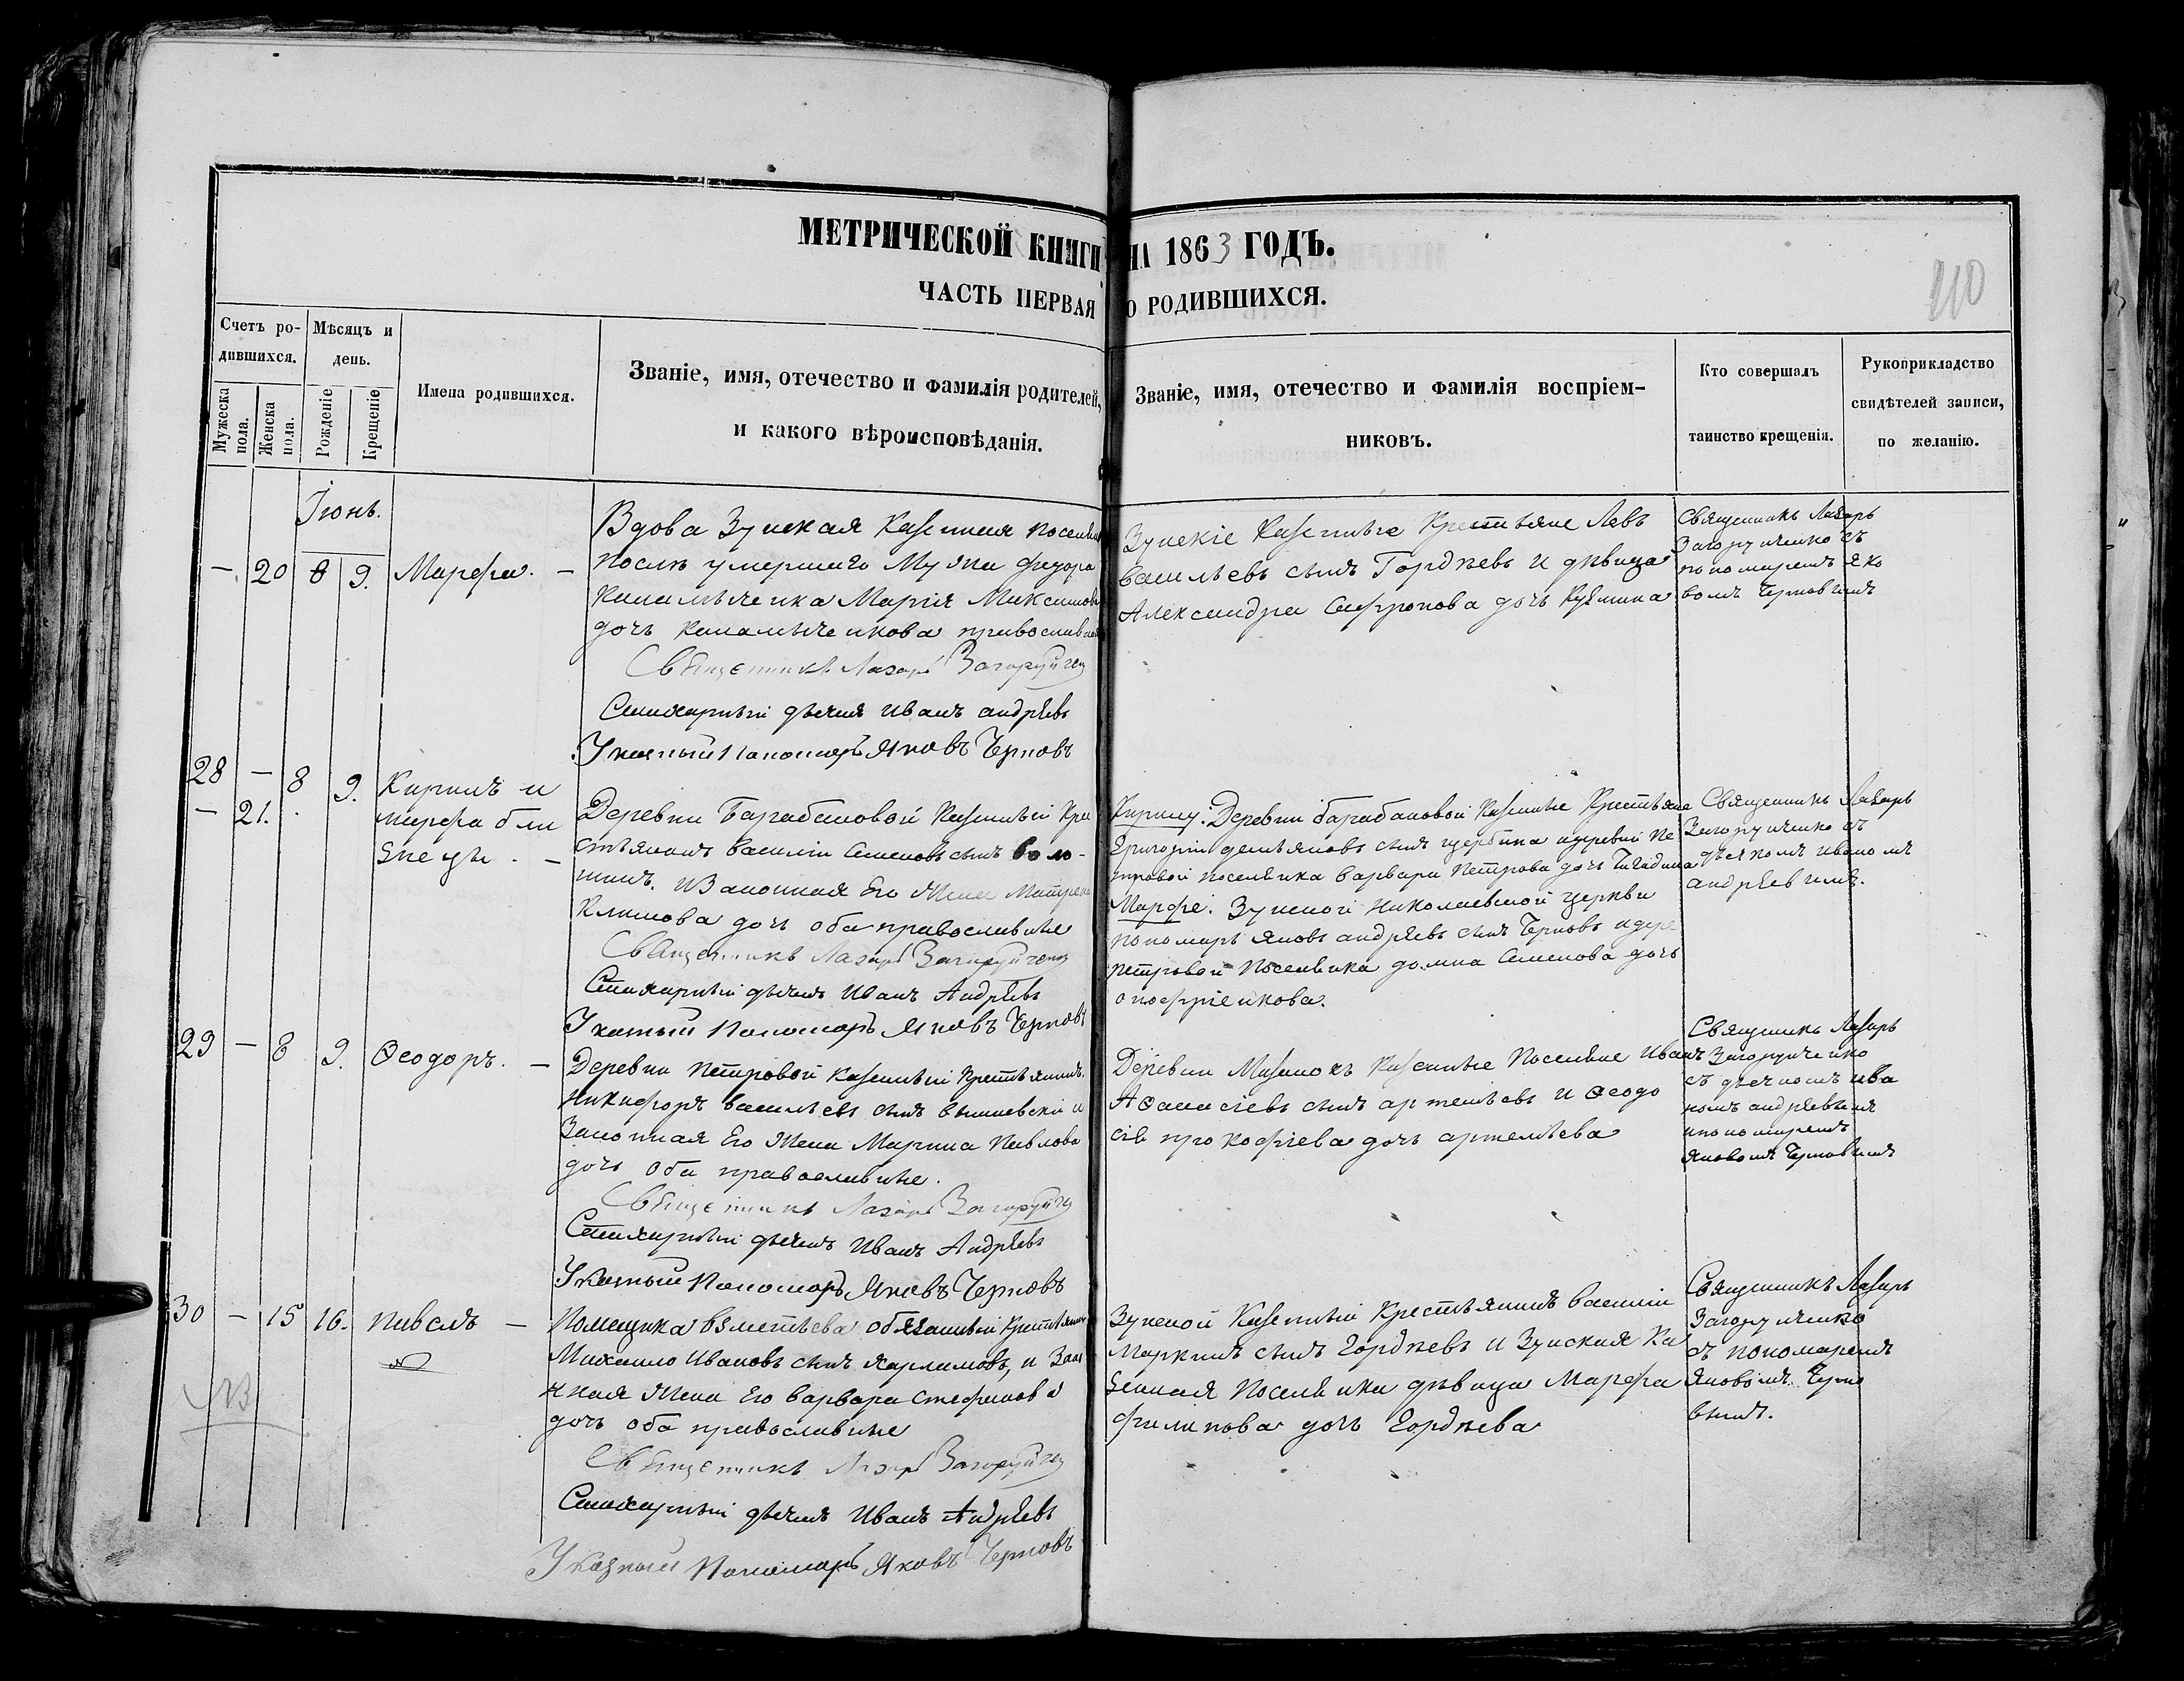 МЕТРИЧЕСКОЙ КНИГИ НА 1863 ГОДЪ.
ЧАСТЬ ПЕРВАЯ О РОДИВШИХСЯ.
110
Счетъ ро-
дившихся.
Мужеска
пола.
Женска
пола.
Мѣсяцъ и
день.
Рожденіе
Крещеніе
Имена родившихся.
Званіе, имя, отечество и фамилія родителей,
и какого вѣроисповѣданія.
Званіе, имя, отечество и фамилія воспріем-
никовъ.
Кто совершалъ
таинство крещенія.
Рукоприкладство
свидѣтелей записи,
по желанію.
Іюнь.
— 20 8 9. Марфа. —
Вдова Зуиская Казенная поселян
послѣ умершаго Мужа физора
Марія Максимов
дочь православной
Священникъ Лазарь Загоруйченко
Стихарный дьячекъ Иванъ андрѣевъ
Указный Пономарь Яковъ Черновъ
Зуискіе Казенные Крестьяне Левъ
Васильевъ сынъ Гордѣевъ и дѣвица
Александра Сафронова дочь Кузмина
Священникъ Лазарь
Загоруйченко съ
пономаремъ Яко
вомъ Черновымъ
28 — 8 9. Кирилъ и
— 21. марфа бли
знецы. —
Деревни Барабановой Казенный Кре
стьянинъ Василій Семеновъ сынъ Воло-
шинъ. и Законная Его Жена Матрена
Климова дочь оба православные
Священникъ Лазарь Загоруйченко
Стихарный дьячекъ Иванъ Андрѣевъ
Указный Пономарь Яковъ Черновъ
Кирилу. Деревни барабановой Казенные Крестьяне
Григорій демьяновъ сынъ щербина идеревни Пе
тровой поселянка Варвара Петрова дочь
Марфѣ. Зуиской Николаевской церкви
пономарь яковъ андрѣевъ сынъ Черновъ идере
петровой Поселянка домна Семенова дочь
онофріенкова.
Священникъ Лазарь
Загоруйченко съ
дьячкомъ иваномъ
андрѣевымъ.
29 — 8 9. Ѳеодоръ. —
Деревни Петровой казенный крестьянинъ.
Никифоръ васильевъ сынъ вышневскій и
Законная Его Жена Марина Павлова
дочь оба православные.
Священникъ Лазарь Загоруйч
Стихарный дьячекъ Иванъ Андрѣевъ
Указный Пономарь Яковъ Черновъ
Деревни Мазанокъ Казенные Поселяне Иванъ
Аѳанасіевъ сынъ артемьевъ и Ѳеодо
сія прокофіева дочь артемьева
Священникъ Лазарь
Загоруйченко
съ дьячкомъ ива
номъ андрѣевымъ
ипономаремъ
яковомъ Черновымъ
30 — 15 16. павелъ —
NB
Помещика обязанный Крестьянин
Михаило Ивановъ сынъ харламовъ, и Зако
нная Жена Его варвара Стефанова
дочь оба православные
Священникъ Лазарь Загоруйчен
Стихарный дьячекъ Иванъ Андрѣевъ
Указный Пономарь Яковъ Черновъ
Зуиской Казенный Крестьянинъ василій
Маркинъ сынъ Гордѣевъ и Зуиская Ка
зенная Поселянка дѣвица Марфа
филипова дочь Гордѣева
Священникъ Лазарь
Загоруйченко
съ пономаремъ
яковомъ Черно
вымъ.